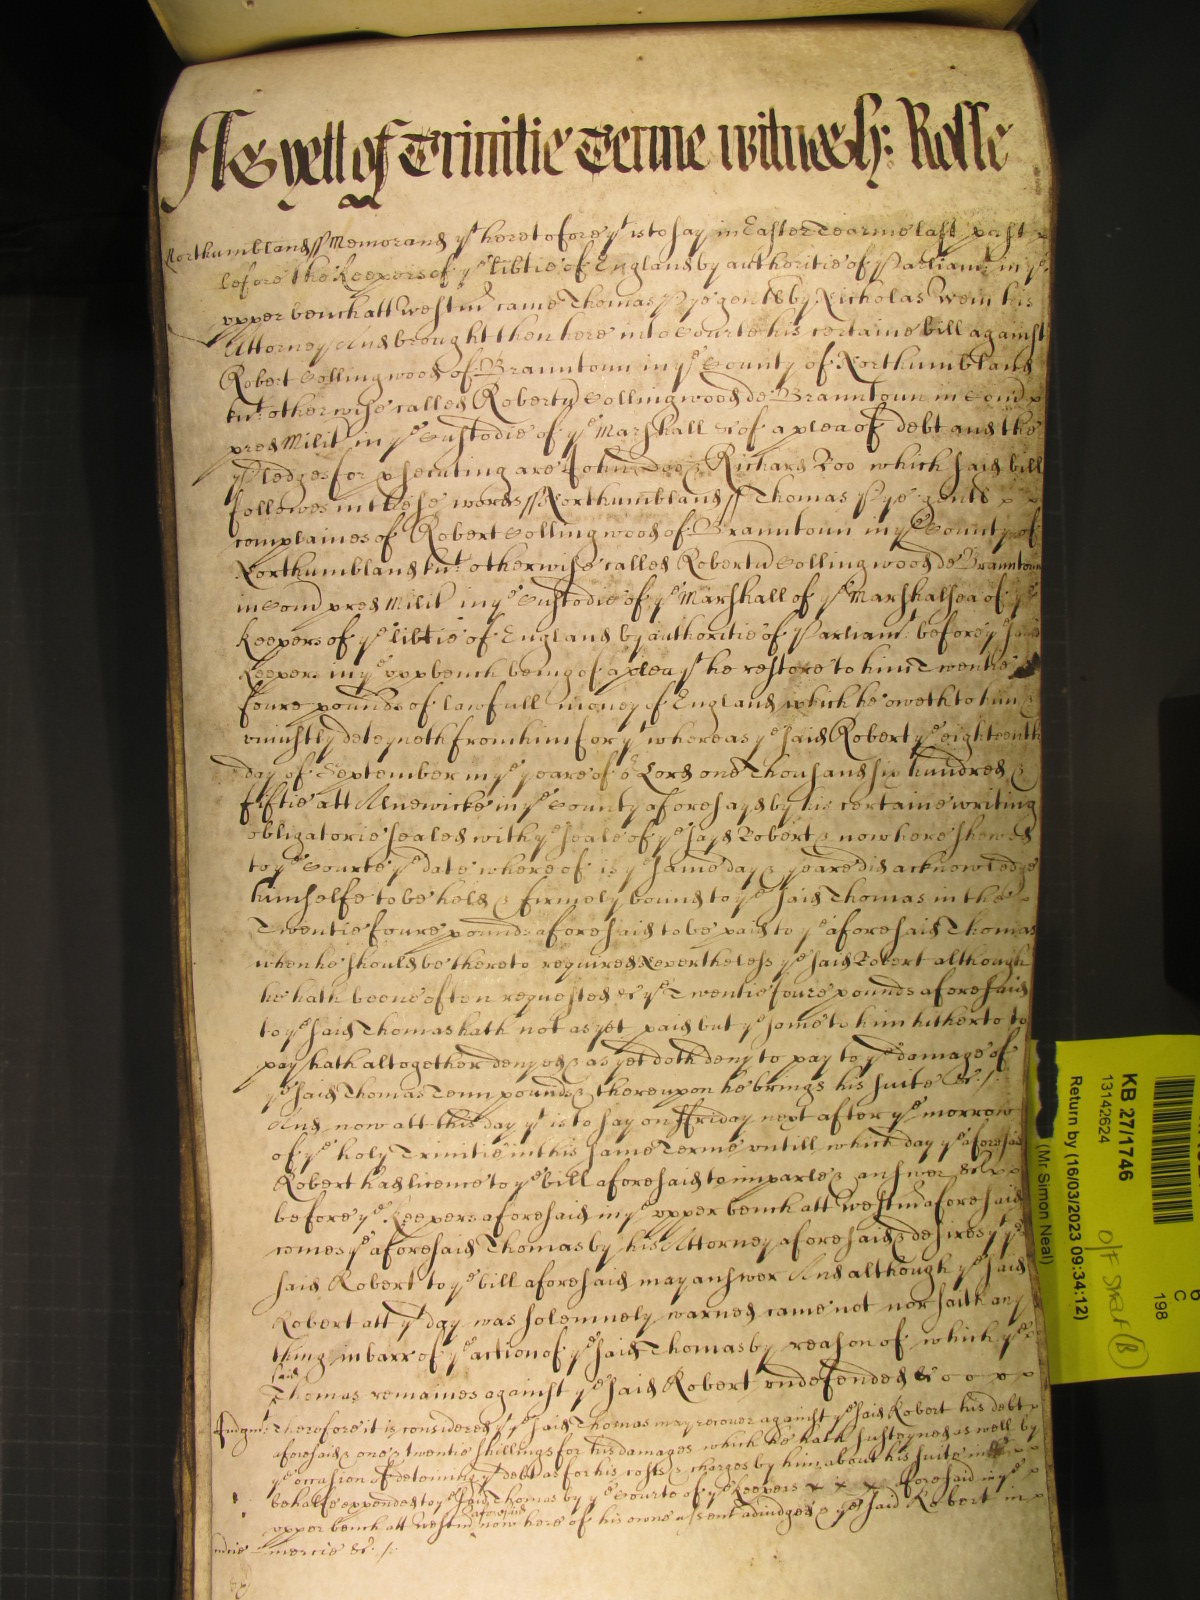 As yett of Trinitie Terme witnesh: Rolle
Northumbland ss Memorand yt heretofore yt is to say in Easter Tearme last past
before the Keepers of ye libtie of England by authoritie of Parliamt in ye
upper bench att Westmr came Thomas Pye gent by Nicholas Wem his
Attorney And brought then here into Courte his certaine bill against
Robert Collingwood of Branntoun in ye County of Northumbland
knt otherwise called Robertu Collingwood de Branntoun in Com
pred Milit in ye Custodie of ye Marshall &c of a plea of debt and the
pledges for psecuting are John Doe & Richard Roo which said bill
followes in these words ss Northumbland ss Thomas Pye gent
complaines of Robert Collingwood of Branntoun in ye County of
Northumbland knt: otherwise called Robertu Collingwood de Branntoun
in Com pred Milit in ye Custodie of ye Marshall of ye Marshalsea of ye
Keepers of ye libtie of England by authoritie of Parliamt: before ye said
Keepers in ye upp bench being of a plea yt he restore to him Twentie
foure pounds of lawfull money of England which he oweth to him &
uniustly deteyneth from him for yt whereas ye said Robert ye eighteenth
day of September in ye yeare of or Lord one Thousand six hundred &
fiftie att Alnewicke in ye County aforesayd by his certaine writing
obligatorie sealed with ye seale of ye sayd Robert & now here shewed
to ye Courte ye date whereof is ye same day & yeare did acknowledge
himselfe to be held & firmely bound to ye said Thomas in the
Twentie foure pounds aforesaid to be paid to ye aforesaid Thomas
when he should be thereto required Nevertheless ye said Robert although
he hath beene often requested &c ye Twentie foure pounds aforesaid
to ye said Thomas hath not as yet paid but ye same to him hitherto to
pay hath altogether denyed & as yet doth deny to pay to ye damage of
ye said Thomas Tenn pounds & thereupon he brings his suite &c:/:
And now att this day yt is to say on Ffriday next after ye morrow
of ye holy Trinitie in this same Terme untill which day ye aforesaid
Robert had licence to ye bill aforesaid to imparle & answer &c
before ye Keepers aforesaid in ye upper bench att Westmr aforesaid
comes ye aforesaid Thomas by his Attorney aforesaid & desires yt ye
said Robert to ye bill aforesaid may answer And although ye said
Robert att yt day was solemnely warned came not nor saith any
thing in barr of ye action of ye said Thomas by reason of which ye
said
Thomas remaines against ye said Robert undefended &c
Judgmt: Therefore it is considered yt ye said Thomas may recover against ye said Robert his debt
aforesaid & one & twentie shillings for his damages which he hath susteyned as well by
ye occasion of deteining yt debt as for his costs & charges by him about his suite in this
behalfe expended to ye said Thomas by ye Courte of ye Keepers aforesaid in ye
upper bench att Westmr aforesaid now here of his owne assent adiudged & ye said Robert in
mercie &c:/:
KB 27/1746
13142624
Return by (16/03/2023 09:34:12)
(Mr Simon Neal)
O/F Strat (B)
C
198